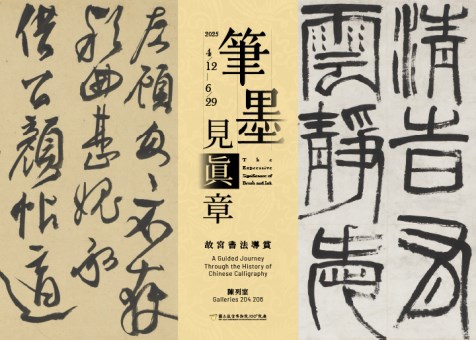 2025
4/12
—
6/29
筆墨
見真章
The
Expressive
Significance of
Brush and Ink
故宮書法導賞
A Guided Journey
Through the History of
Chinese Calligraphy
陳列室
Galleries 204 206
國立故宮博物院
清音
雲靜
甚愧
借公顏帖